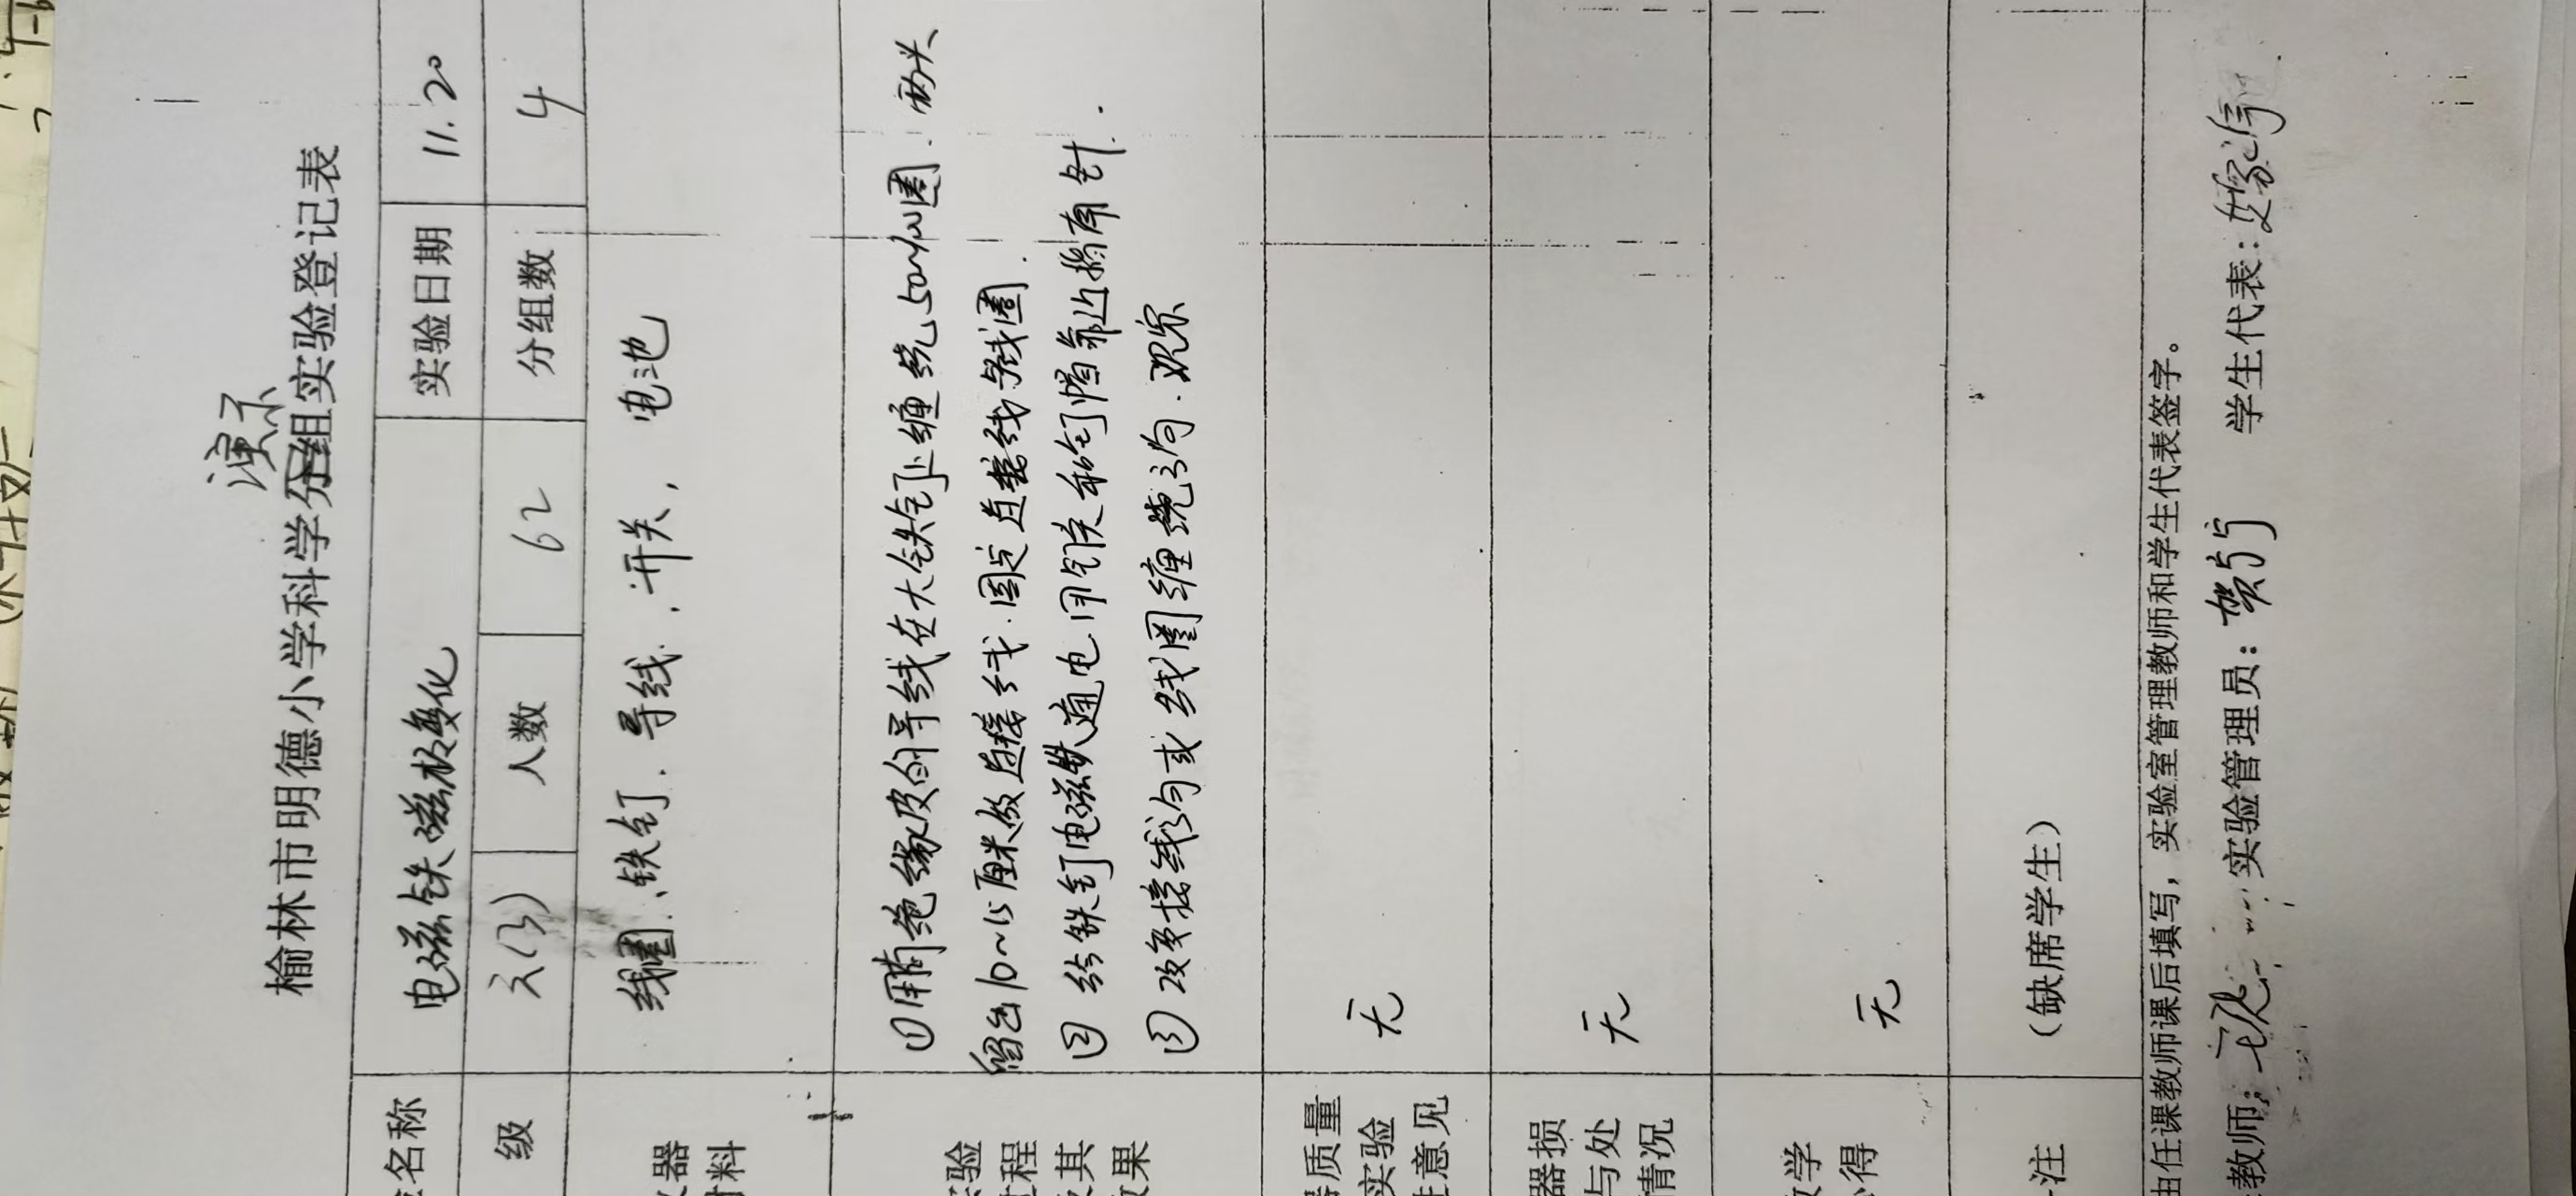 演示
榆林市明德小学科学分组实验登记表
名称 电磁铁磁极变化 实验日期 11.20
级 三(3) 人数 62 分组数 4
器 线圈、铁钉、导线、开关, 电池
材料
实验 ①用有绝缘皮的导线在大铁钉上缠绕50~100圈.两头
过程 留出10~15厘米做连接线.固定连接线导线圈.
及其 ②给铁钉电磁铁通电.闭开关和钉帽靠近指南针.
效果 ③改变接线方向或线圈缠绕方向.观察
器质量 无
实验
意见
器损 无
与处
情况
教学 无
心得
注 (缺席学生)
由任课教师课后填写, 实验室管理教师和学生代表签字。
教师: 实验管理员: 学生代表: